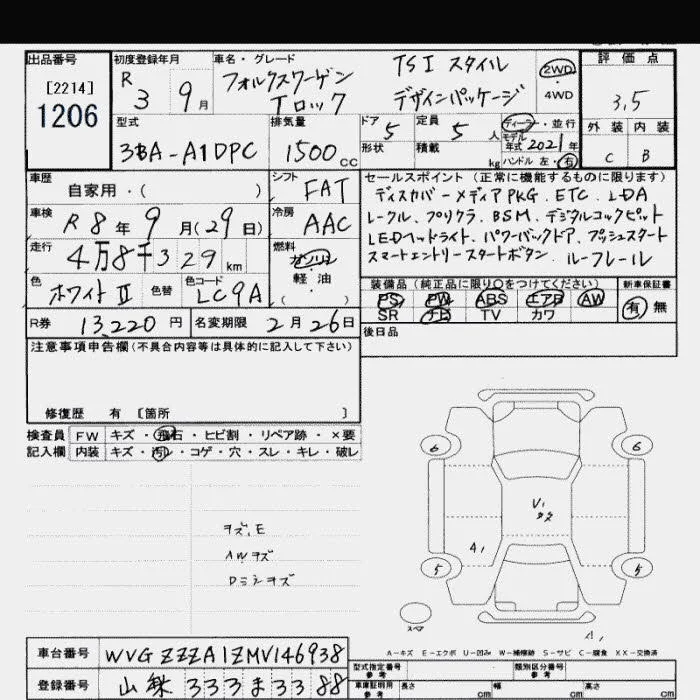 出品番号
[2214]
1206
初度登録年月
R 3 9月
車名・グレード
フォルクスワーゲン TSI スタイル
Tロック デザインパッケージ
2WD
・
4WD
評価点
3,5
型式
3BA-A1DPC
排気量
1500cc
ドア
5
定員
5人
形状
積載
kg
ディーラー・並行
モデル年式 2021年
ハンドル 左・右
外装 内装
C B
車歴
自家用・( )
シフト
FAT
車検
R8年9月(29日)
冷房
AAC
走行
4万8千329km
燃料
ガソリン
・
軽油
( )
色
ホワイトII
色替
色コード
LC9A
セールスポイント(正常に機能するものに限ります)
ディスカバーメディアPKG. ETC. LDA
レークル、プリクラ. BSM. デジタルコックピット
LEDヘッドライト、パワーバックドア、プッシュスタート
スマートエントリースタートボタン. ルーフレール
装備品(純正品に限り○をつけてください)
PS PW ABS エアB AW
SR ナビ TV カワ
新車保証書
有・無
R券
13,220円
名変期限
2月26日
後日品
注意事項申告欄(不具合内容等は具体的に記入して下さい)
修復歴 有 [箇所 ]
検査員記入欄
FW キズ・飛石・ヒビ割・リペア跡・×要
内装 キズ・汚レ・コゲ・穴・スレ・キレ・破レ
ヲズ, E
AWヲズ
Dミラヲズ
6 6
A1
5 5
スペア
A1
A-キズ E-エクボ U-凹み W-補修跡 S-サビ C-腐食 XX-交換済
車台番号
WVGZZZA1ZMV146938
登録番号
山梨 333 ま 3388
型式指定番号
参考
類別区分番号
参考
車庫証明用
参考
長さ cm 幅 cm 高さ cm